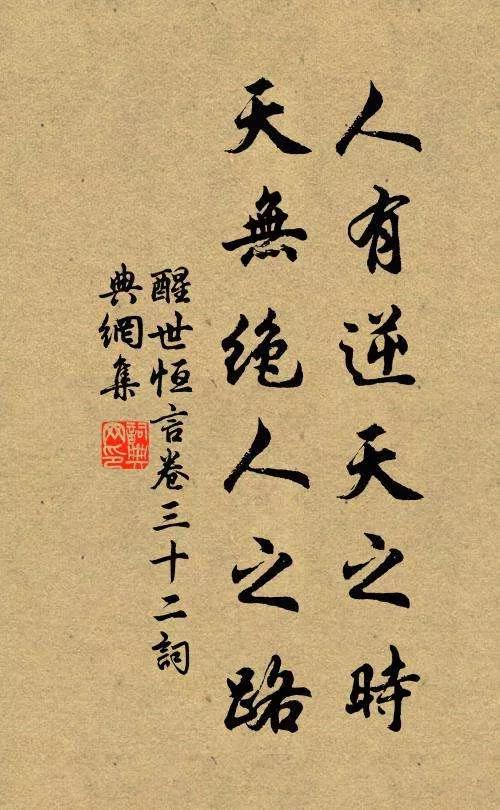 人有逆天之時
天無絕人之路
醒世恒言卷三十二詞
典網集
詞典網印